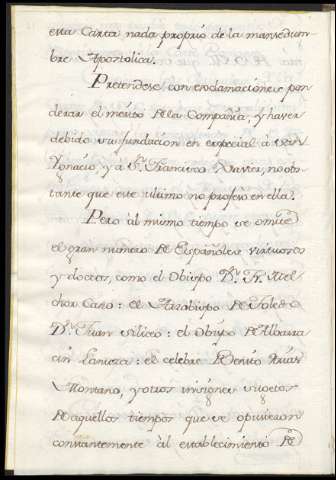 esta Carta nada proprio de la mansedum-
bre Apostolica.
Pretendese con exclamaciones pon
derar el merito de la Compañia, y haver
debido su fundacion en especial à Sn
Ygnacio, y a Sn. Francisco Xavier, no obs
tante que este ultimo no profesó en ella.
Pero àl mismo tiempo se omite
el gran numero de Españoles virtuosos
y doctos, como el Obispo Dn. Fr. Mel
chor Cano: el Arzobispo de Toledo
Dn. Juan Siliceo: el Obispo de Albarra
cin Lanuza: el celebre Benito Arias
Montano, y otros insignes sugetos
de aquellos tiempos que se opusieron
constantemente àl establecimiento de